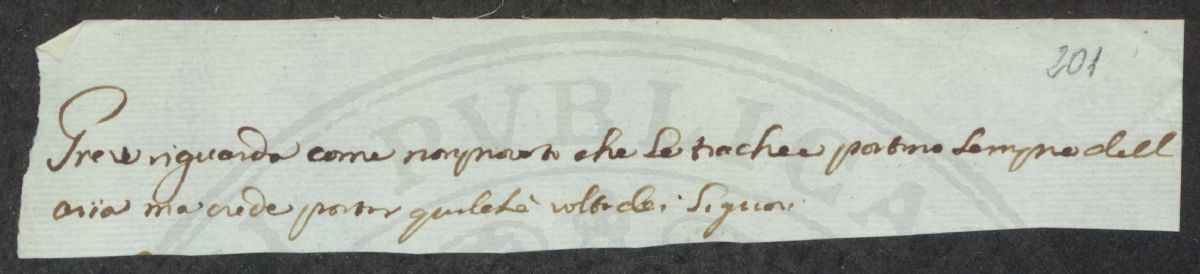 201
Grew riguarda come non provato che le trachee portino sempre dell
aria ma crede portar qualche volta dei Signori